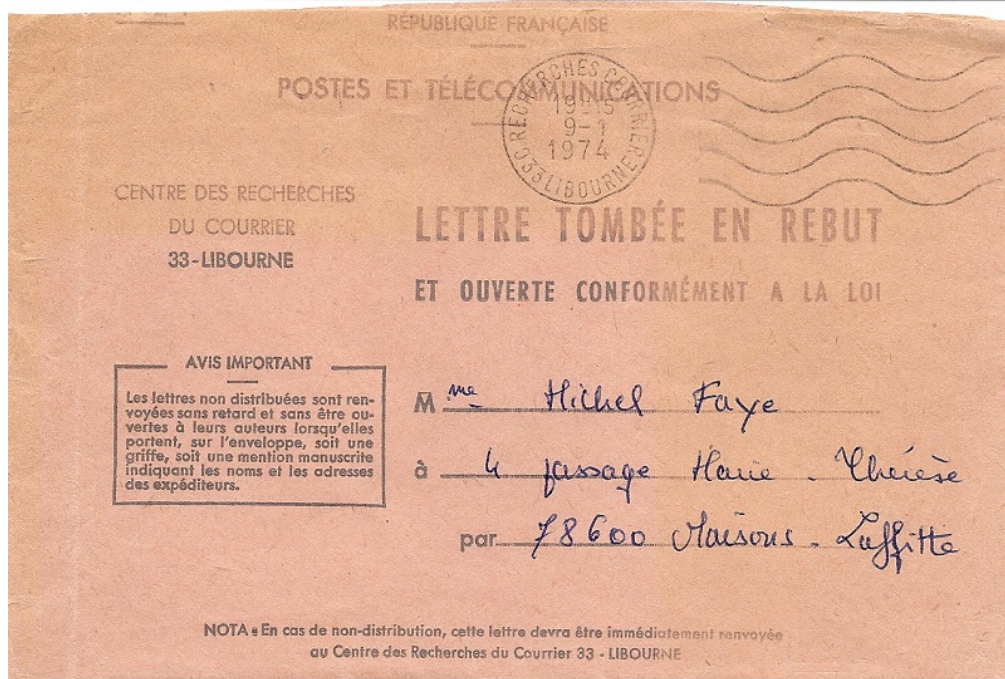 RÉPUBLIQUE FRANÇAISE
POSTES ET TÉLÉCOMMUNICATIONS
C RECHERCHES COURRIER
9-1
1974
33 LIBOURNE
CENTRE DES RECHERCHES
DU COURRIER
33-LIBOURNE
LETTRE TOMBÉE EN REBUT
ET OUVERTE CONFORMÉMENT A LA LOI
AVIS IMPORTANT
Les lettres non distribuées sont ren-
voyées sans retard et sans être ou-
vertes à leurs auteurs lorsqu'elles
portent, sur l'enveloppe, soit une
griffe, soit une mention manuscrite
indiquant les noms et les adresses
des expéditeurs.
Mme Michel Faye
à 4 passage Marie-Thérèse
par 78600 Maisons-Laffitte
NOTA : En cas de non-distribution, cette lettre devra être immédiatement renvoyée
au Centre des Recherches du Courrier 33 - LIBOURNE